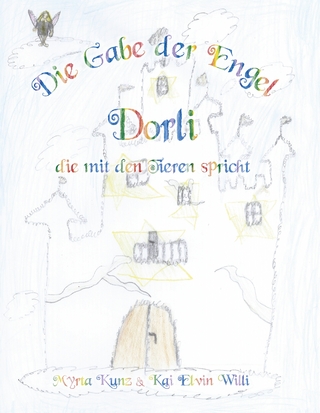 Die Gabe der Engel
Dorli
die mit den Tieren spricht
Myrta Kunz & Kai Elvin Willi